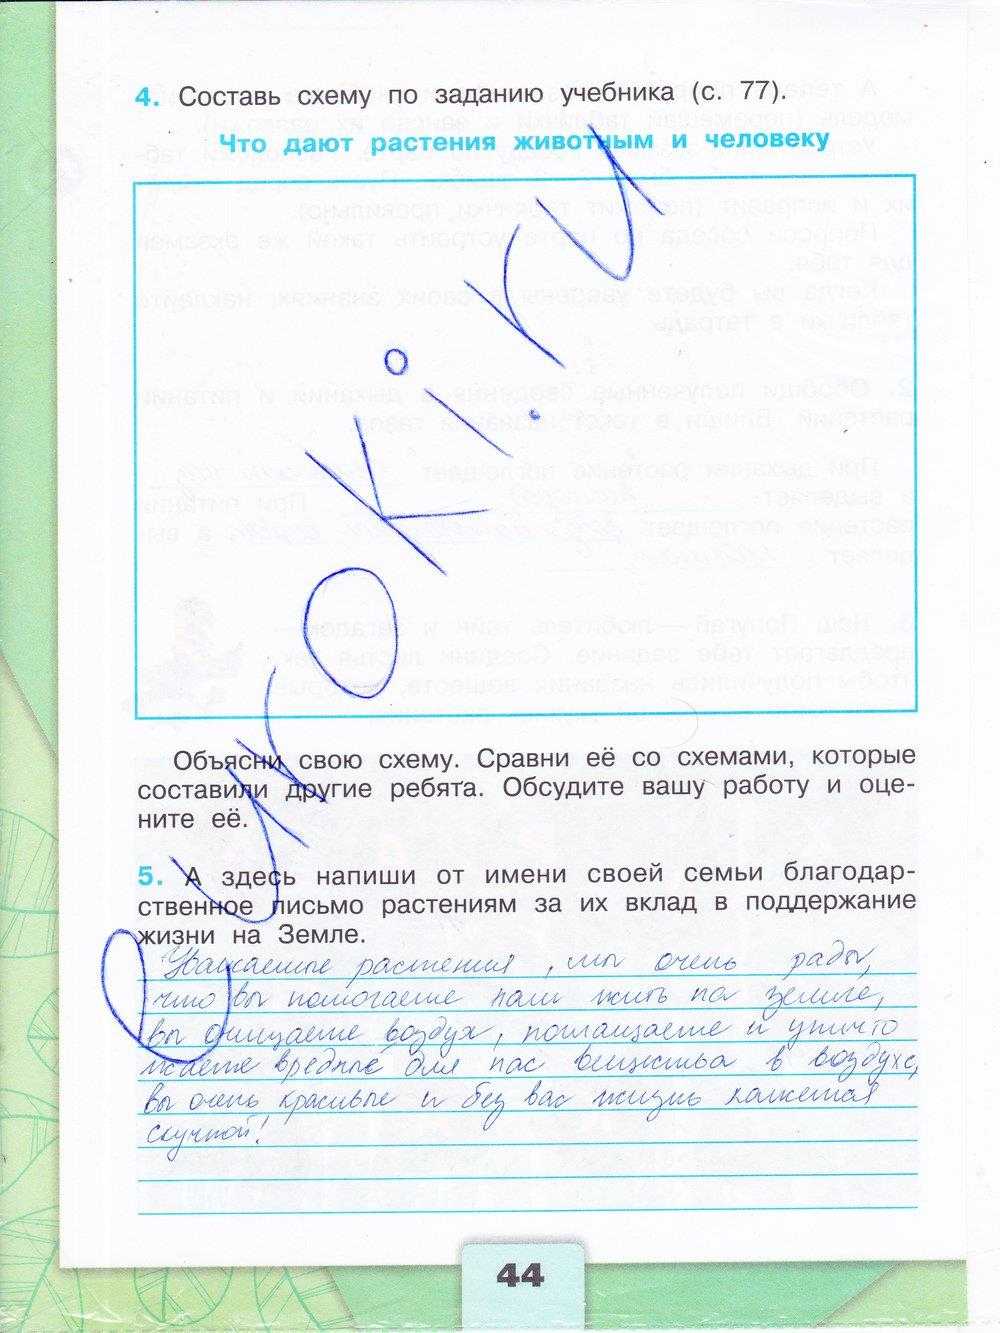 4. Составь схему по заданию учебника (с. 77).
Что дают растения животным и человеку
Объясни свою схему. Сравни её со схемами, которые
составили другие ребята. Обсудите вашу работу и оце-
ните её.
5. А здесь напиши от имени своей семьи благодар-
ственное письмо растениям за их вклад в поддержание
жизни на Земле.
Уважаемые растения, мы очень рады,
что вы помогаете нам жить на земле,
вы очищаете воздух, поглащаете и уничто
жаете вредные для нас вещества в воздухе,
вы очень красивые и без вас жизнь кажется
скучной!
eurokі.ru
44